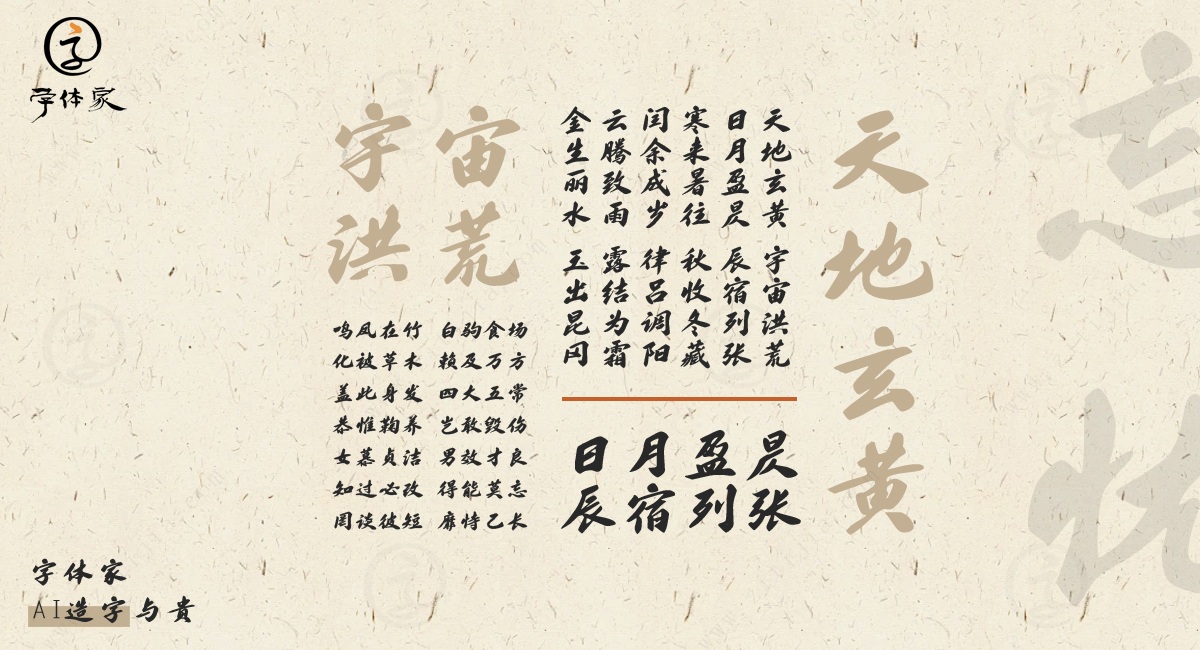 字体家
天地玄黄
天地玄黄 宇宙洪荒
日月盈昃 辰宿列张
寒来暑往 秋收冬藏
闰余成岁 律吕调阳
云腾致雨 露结为霜
金生丽水 玉出昆冈
日月盈昃
辰宿列张
宇宙
洪荒
鸣凤在竹 白驹食场
化被草木 赖及万方
盖此身发 四大五常
恭惟鞠养 岂敢毁伤
女慕贞洁 男效才良
知过必改 得能莫忘
罔谈彼短 靡恃己长
字体家
AI造字与贵